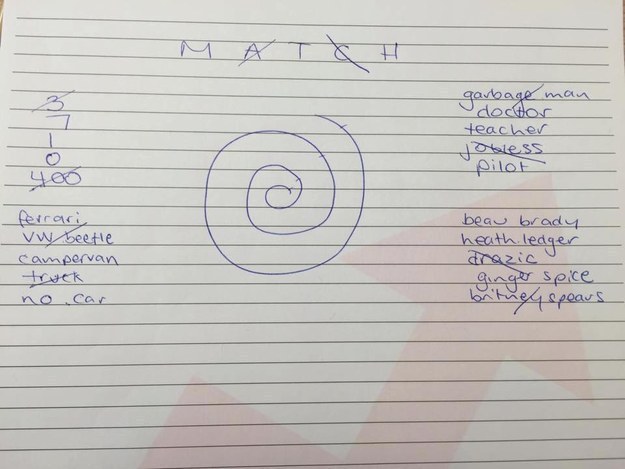 M A T C H
3
7
1
0
400
garbage man
doctor
teacher
jobless
pilot
ferrari
VW beetle
campervan
truck
no car
beau brady
heath ledger
drazic
ginger spice
britney spears